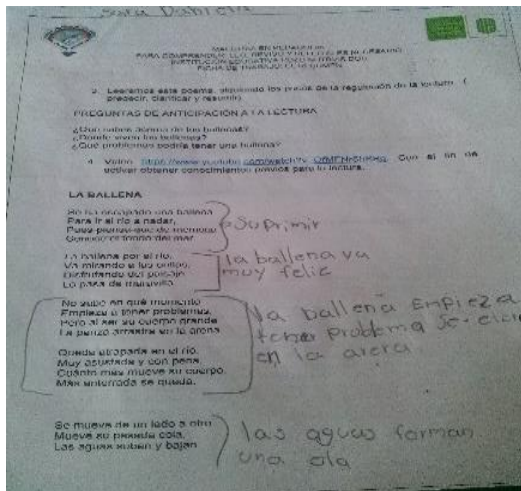 Sara Daniela
MAESTRIA EN PEDAGOGIA
INSTITUCION EDUCATIVA
3. Leeremos este poema, siguiendo los pasos de la regulación de la lectura (
predecir, clarificar y resumir)
PREGUNTAS DE ANTICIPACIÓN A LA LECTURA
¿Qué sabes acerca de las ballenas?
¿Dónde viven las ballenas?
¿Qué problemas podría tener una ballena?
4. Video Con el fin de
activar obtener conocimientos previos para la lectura.
LA BALLENA
Se ha escapado una ballena
Para ir al río a nadar,
Pues piensa que de memoria
fondo del mar
Suprimir
La ballena por el río,
Va mirando a las orillas,
Disfrutando del paisaje
Lo pasa de maravilla
la ballena va
muy feliz
No sabe en qué momento
Empieza a tener problemas,
Pero al ser su cuerpo grande
La panza arrastra en la arena
Queda atrapada en el río,
Muy asustada y con pena,
Cuánto más mueve su cuerpo
Más enterrada se queda.
la ballena empieza
tener problema
en la arena
Se mueve de un lado a otro
Mueve su pesada cola,
Las aguas suben y bajan
las aguas forman
una ola